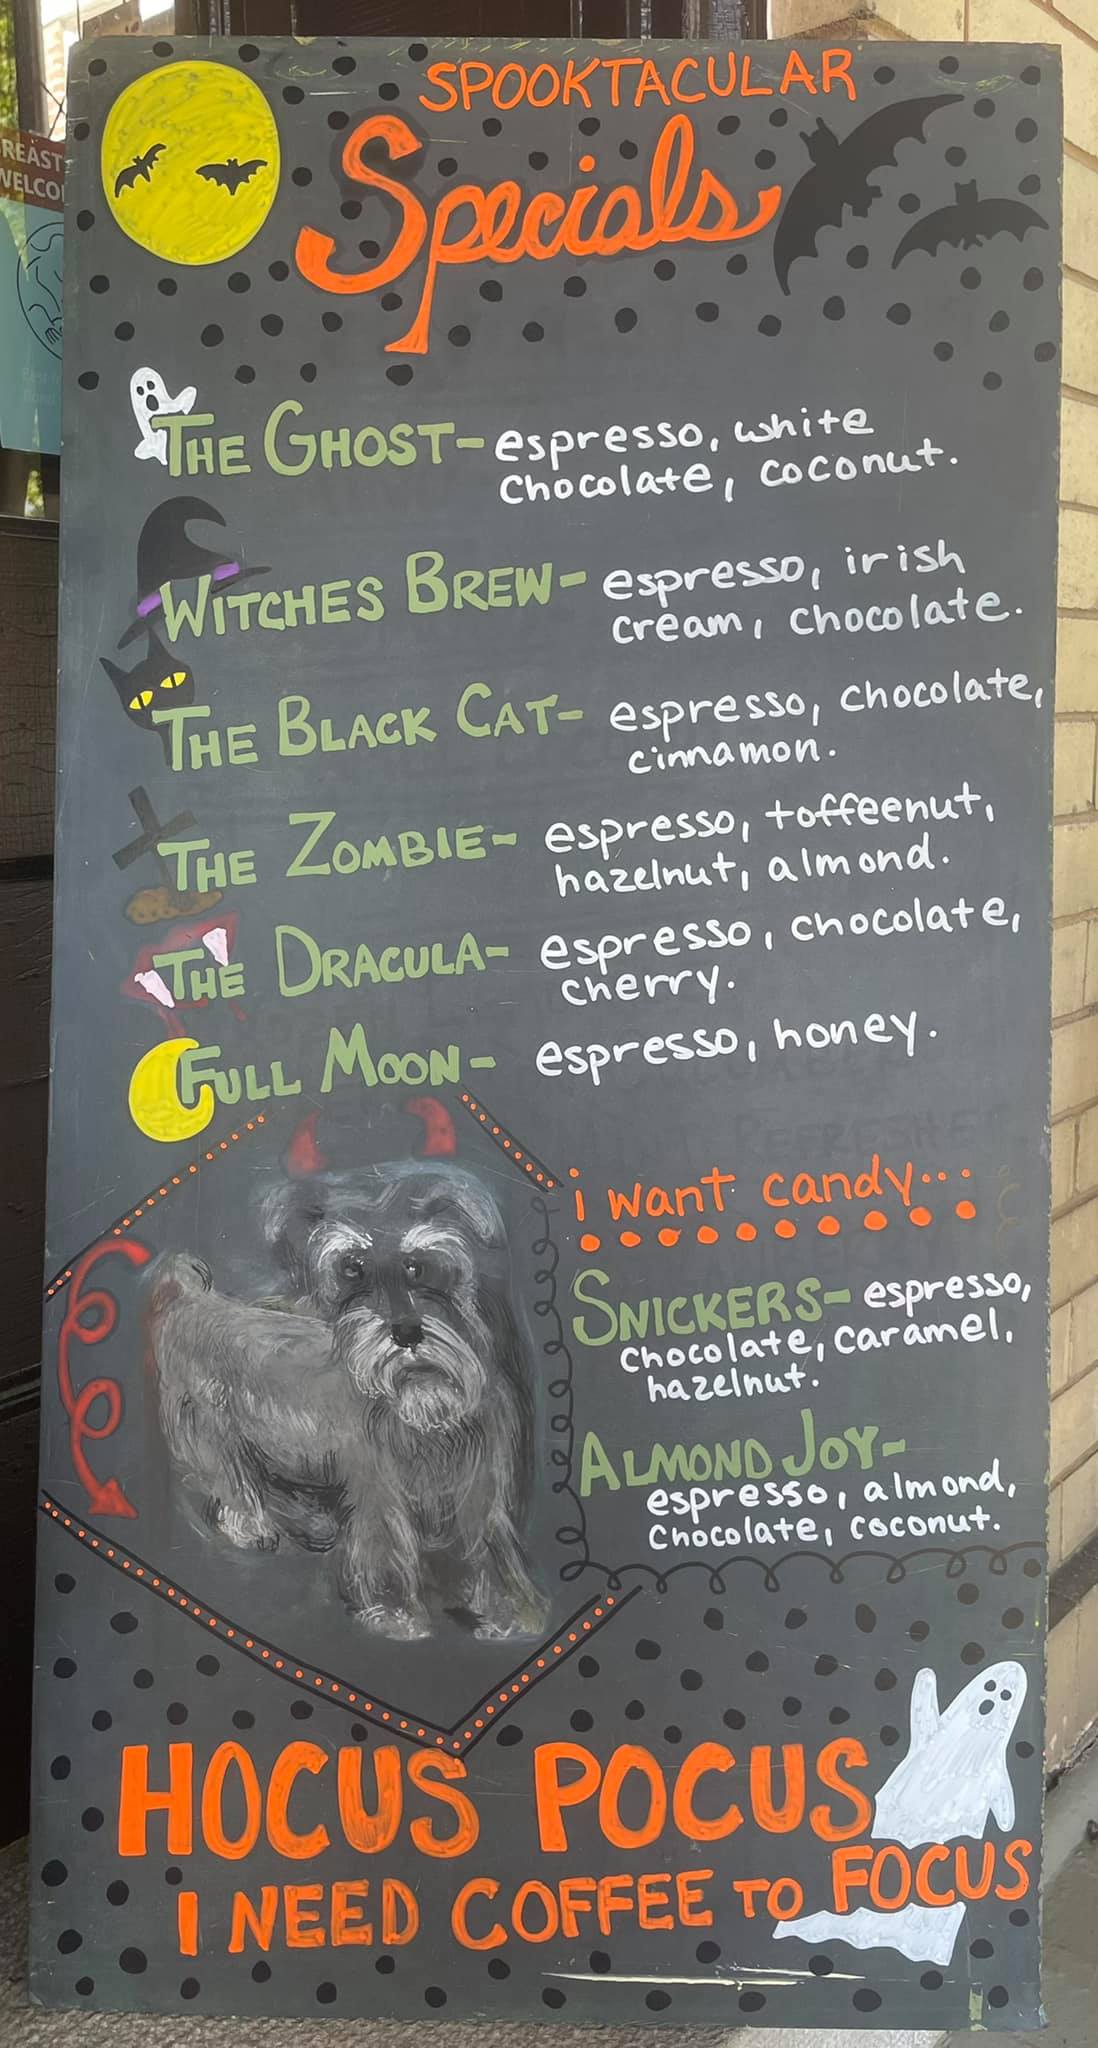 SPOOKTACULAR
Specials
THE GHOST- espresso, white
chocolate, coconut.
WITCHES BREW- espresso, irish
cream, chocolate.
THE BLACK CAT- espresso, chocolate,
cinnamon.
THE ZOMBIE- espresso, toffeenut,
hazelnut, almond.
THE DRACULA- espresso, chocolate,
cherry.
FULL MOON- espresso, honey.
i want candy...
SNICKERS- espresso,
chocolate, caramel,
hazelnut.
ALMOND JOY-
espresso, almond,
chocolate, coconut.
HOCUS POCUS
I NEED COFFEE TO FOCUS